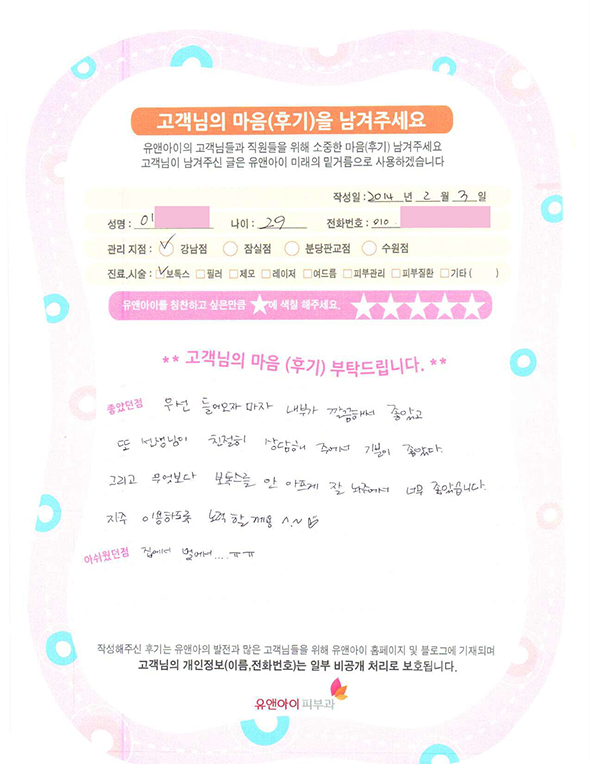 고객님의 마음(후기)을 남겨주세요
유앤아이의 고객님들과 직원들을 위해 소중한 마음(후기) 남겨주세요
고객님이 남겨주신 글은 유앤아이 미래의 밑거름으로 사용하겠습니다
작성일 : 2014 년 2 월 3 일
성명 : 이 나이 : 29 전화번호 : 010
관리 지점 : 강남점 잠실점 분당판교점 수원점
진료,시술 : 보톡스 필러 제모 레이저 여드름 피부관리 피부질환 기타 ( )
유앤아이를 칭찬하고 싶은만큼 ★에 색칠 해주세요.
** 고객님의 마음 (후기) 부탁드립니다. **
좋았던점 우선 들어오자 마자 내부가 깔끔해서 좋았고
또 선생님이 친절히 상담해 주셔서 기분이 좋았다.
그리고 무엇보다 보톡스를 안 아프게 잘 놔주셔서 너무 좋았습니다.
자주 이용하도록 노력 할게용 ^.~
아쉬웠던점 집에서 멀어서.... ㅠㅠ
작성해주신 후기는 유앤아의 발전과 많은 고객님들을 위해 유앤아이 홈페이지 및 블로그에 기재되며
고객님의 개인정보(이름,전화번호)는 일부 비공개 처리로 보호됩니다.
유앤아이 피부과